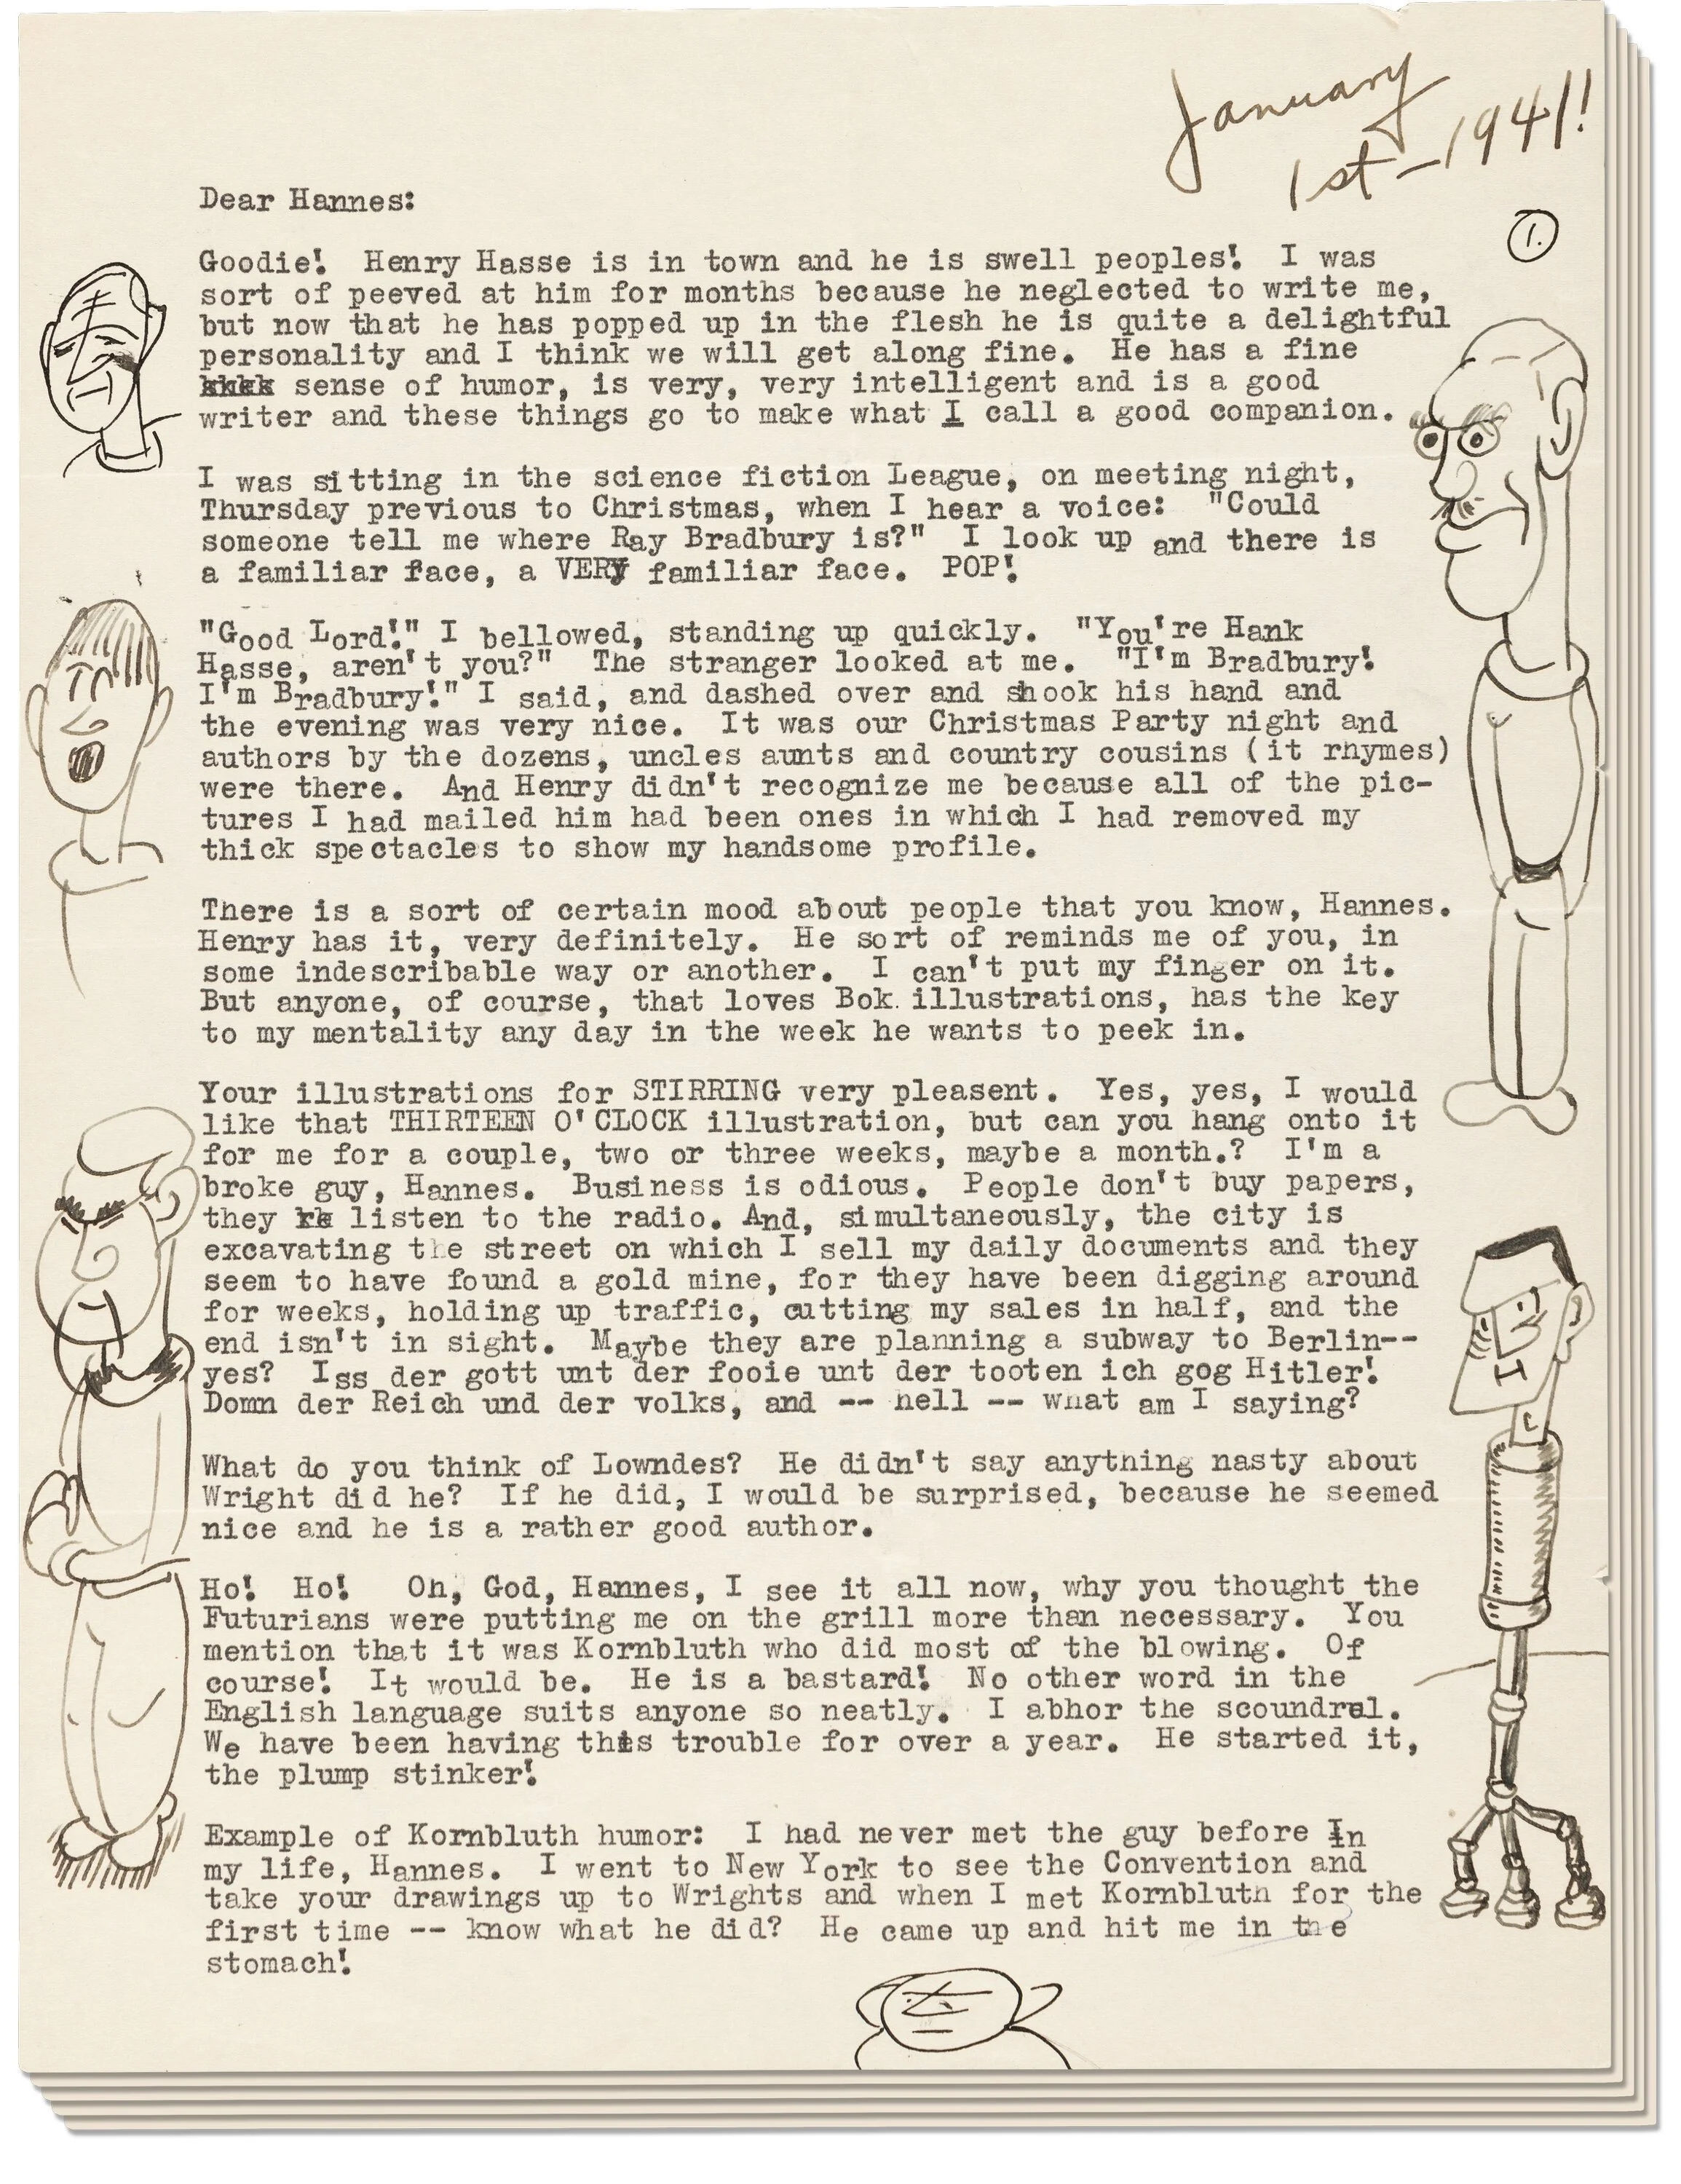 January
1st-1941!
1.
Dear Hannes:
Goodie!  Henry Hasse is in town and he is swell peoples!  I was
sort of peeved at him for months because he neglected to write me,
but now that he has popped up in the flesh he is quite a delightful
personality and I think we will get along fine.  He has a fine
sense of humor, is very, very intelligent and is a good
writer and these things go to make what I call a good companion.
I was sitting in the science fiction League, on meeting night,
Thursday previous to Christmas, when I hear a voice:  "Could
someone tell me where Ray Bradbury is?"  I look up and there is
a familiar face, a VERY familiar face.  POP!
"Good Lord!" I bellowed, standing up quickly.  "You're Hank
Hasse, aren't you?"  The stranger looked at me.  "I'm Bradbury!
I'm Bradbury!" I said, and dashed over and shook his hand and
the evening was very nice.  It was our Christmas Party night and
authors by the dozens, uncles aunts and country cousins (it rhymes)
were there.  And Henry didn't recognize me because all of the pic-
tures I had mailed him had been ones in which I had removed my
thick spectacles to show my handsome profile.
There is a sort of certain mood about people that you know, Hannes.
Henry has it, very definitely.  He sort of reminds me of you, in
some indescribable way or another.  I can't put my finger on it.
But anyone, of course, that loves Bok illustrations, has the key
to my mentality any day in the week he wants to peek in.
Your illustrations for STIRRING very pleasent.  Yes, yes, I would
like that THIRTEEN O'CLOCK illustration, but can you hang onto it
for me for a couple, two or three weeks, maybe a month.?  I'm a
broke guy, Hannes.  Business is odious.  People don't buy papers,
they listen to the radio. And, simultaneously, the city is
excavating the street on which I sell my daily documents and they
seem to have found a gold mine, for they have been digging around
for weeks, holding up traffic, cutting my sales in half, and the
end isn't in sight.  Maybe they are planning a subway to Berlin--
yes?  Iss der gott unt der fooie unt der tooten ich gog Hitler!
Domn der Reich und der volks, and -- hell -- what am I saying?
What do you think of Lowndes?  He didn't say anything nasty about
Wright did he?  If he did, I would be surprised, because he seemed
nice and he is a rather good author.
Ho!  Ho!   Oh, God, Hannes, I see it all now, why you thought the
Futurians were putting me on the grill more than necessary.  You
mention that it was Kornbluth who did most of the blowing.  Of
course!  It would be.  He is a bastard!  No other word in the
English language suits anyone so neatly.  I abhor the scoundrel.
We have been having this trouble for over a year.  He started it,
the plump stinker!
Example of Kornbluth humor:  I had never met the guy before In
my life, Hannes.  I went to New York to see the Convention and
take your drawings up to Wrights and when I met Kornbluth for the
first time -- know what he did?  He came up and hit me in the
stomach!